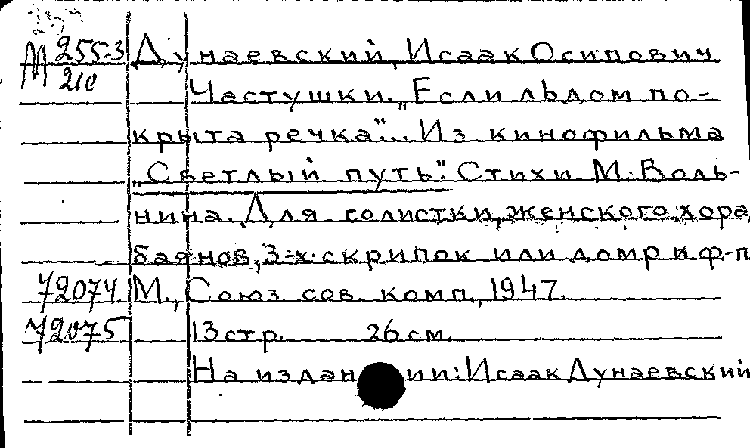 М 255-3 Дунаевский, Исаак Осипович
210 Частушки. „Если льдом по-
крыта речка"... Из кинофильма
„Светлый путь". Стихи М. Воль-
нина. Для солистки, женского хора,
баянов, 3-х скрипок или домр и ф-п
72074 М., Союз сов. комп., 1947.
72075 13 стр. 26 см.
На издании: Исаак Дунаевский